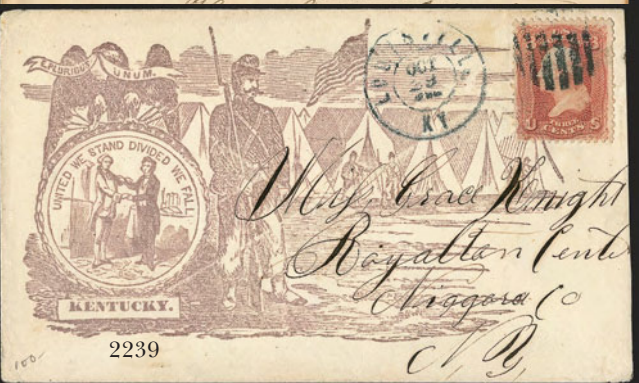 E PLURIBUS UNUM.
UNITED WE STAND DIVIDED WE FALL
KENTUCKY.
LOUISVILLE
OCT
23
KY
U THREE CENTS S
Miss Grace Knight
Royalton Cente
Niagara Co
N. Y.
2239
100-